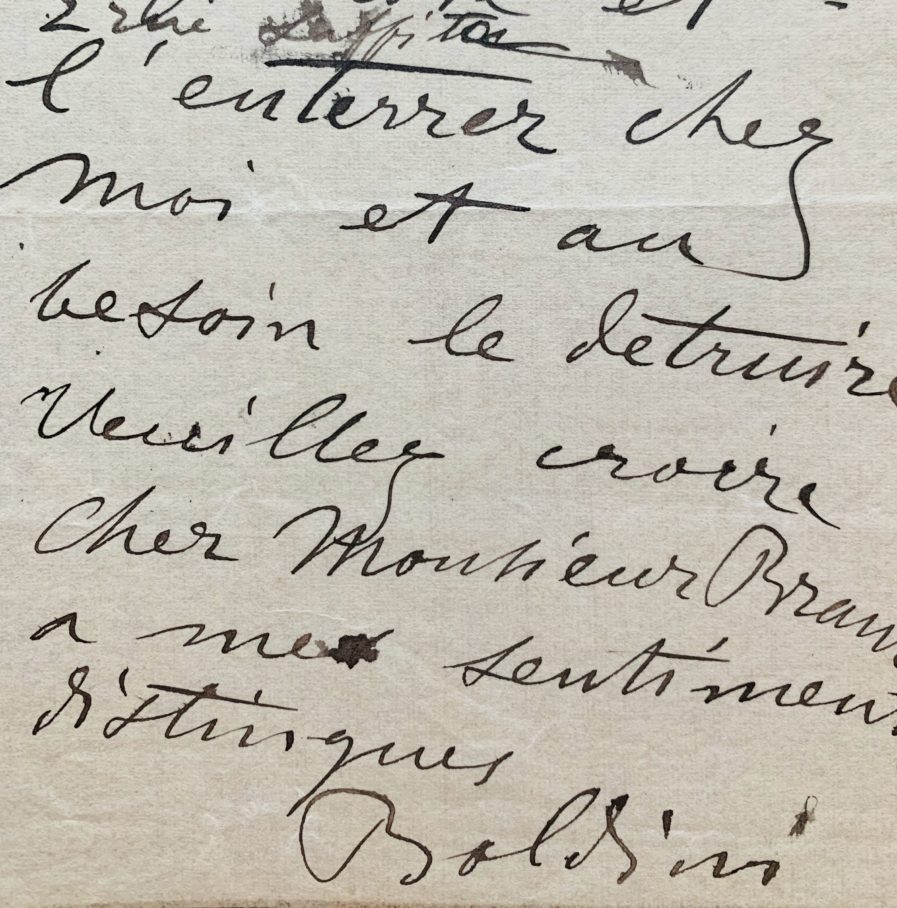 l'enterrer chez
moi et au
besoin le detruire
Veuillez croire
cher Monsieur
a mes sentiment
distingues
Boldini